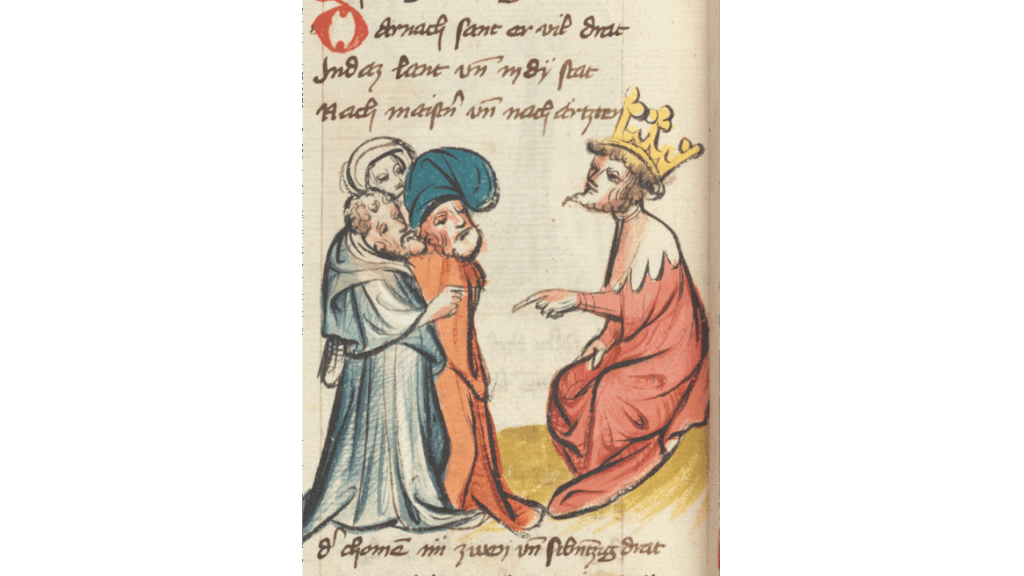 Darnach sant er vil drat
Jn daz lant vn̄ in dÿ stat
Nach maistn̄ vn̄ nach ärtzten
dˀ chomē im zwen vn̄ sibentzig drat